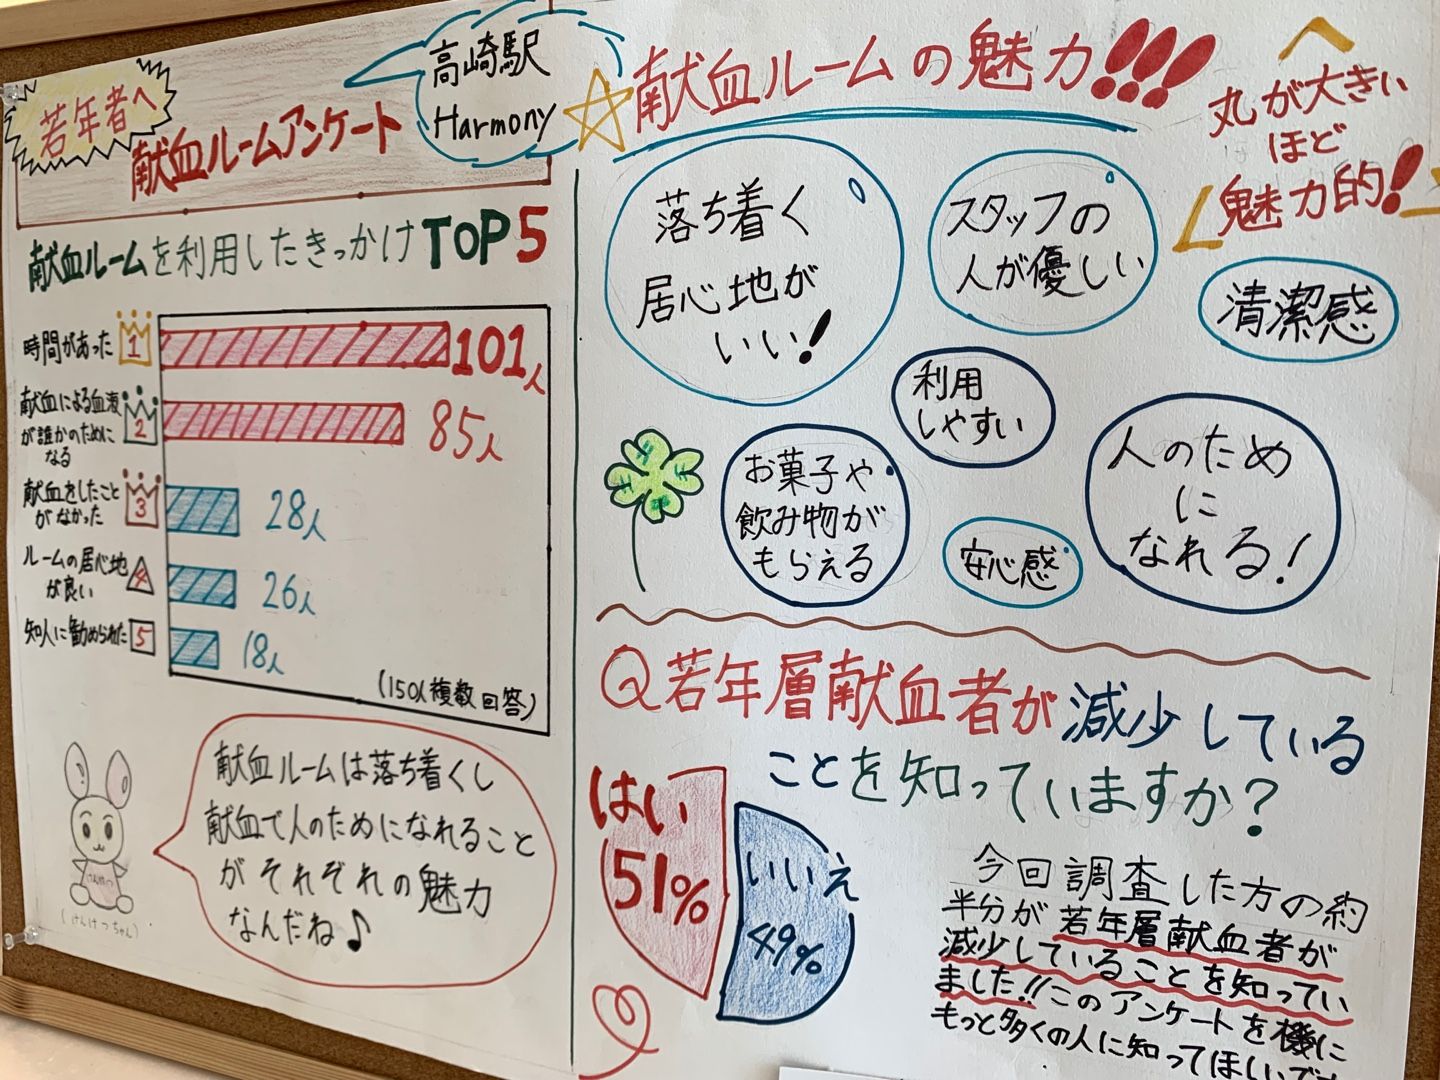 若年者へ
献血ルームアンケート
高崎駅
Harmony
献血ルームを利用したきっかけTOP5
時間があった
1
101人
献血による血液
が誰かのために
なる
2
85人
献血をしたこと
がなかった
3
28人
ルームの居心地
が良い
4
26人
知人に勧められた
5
18人
(150人複数回答)
献血ルームは落ち着くし
献血で人のためになれること
がそれぞれの魅力
なんだね♪
けんけつ
(けんけつちゃん)
献血ルームの魅力!!!
丸が大きい
ほど
魅力的!
落ち着く
居心地が
いい!
スタッフの
人が優しい
清潔感
利用
しやすい
お菓子や
飲み物が
もらえる
安心感
人のため
に
なれる!
Q若年層献血者が減少している
ことを知っていますか?
はい
51%
いいえ
49%
今回調査した方の約
半分が若年層献血者が
減少していることを知ってい
ました!!このアンケートを機に
もっと多くの人に知ってほしいです